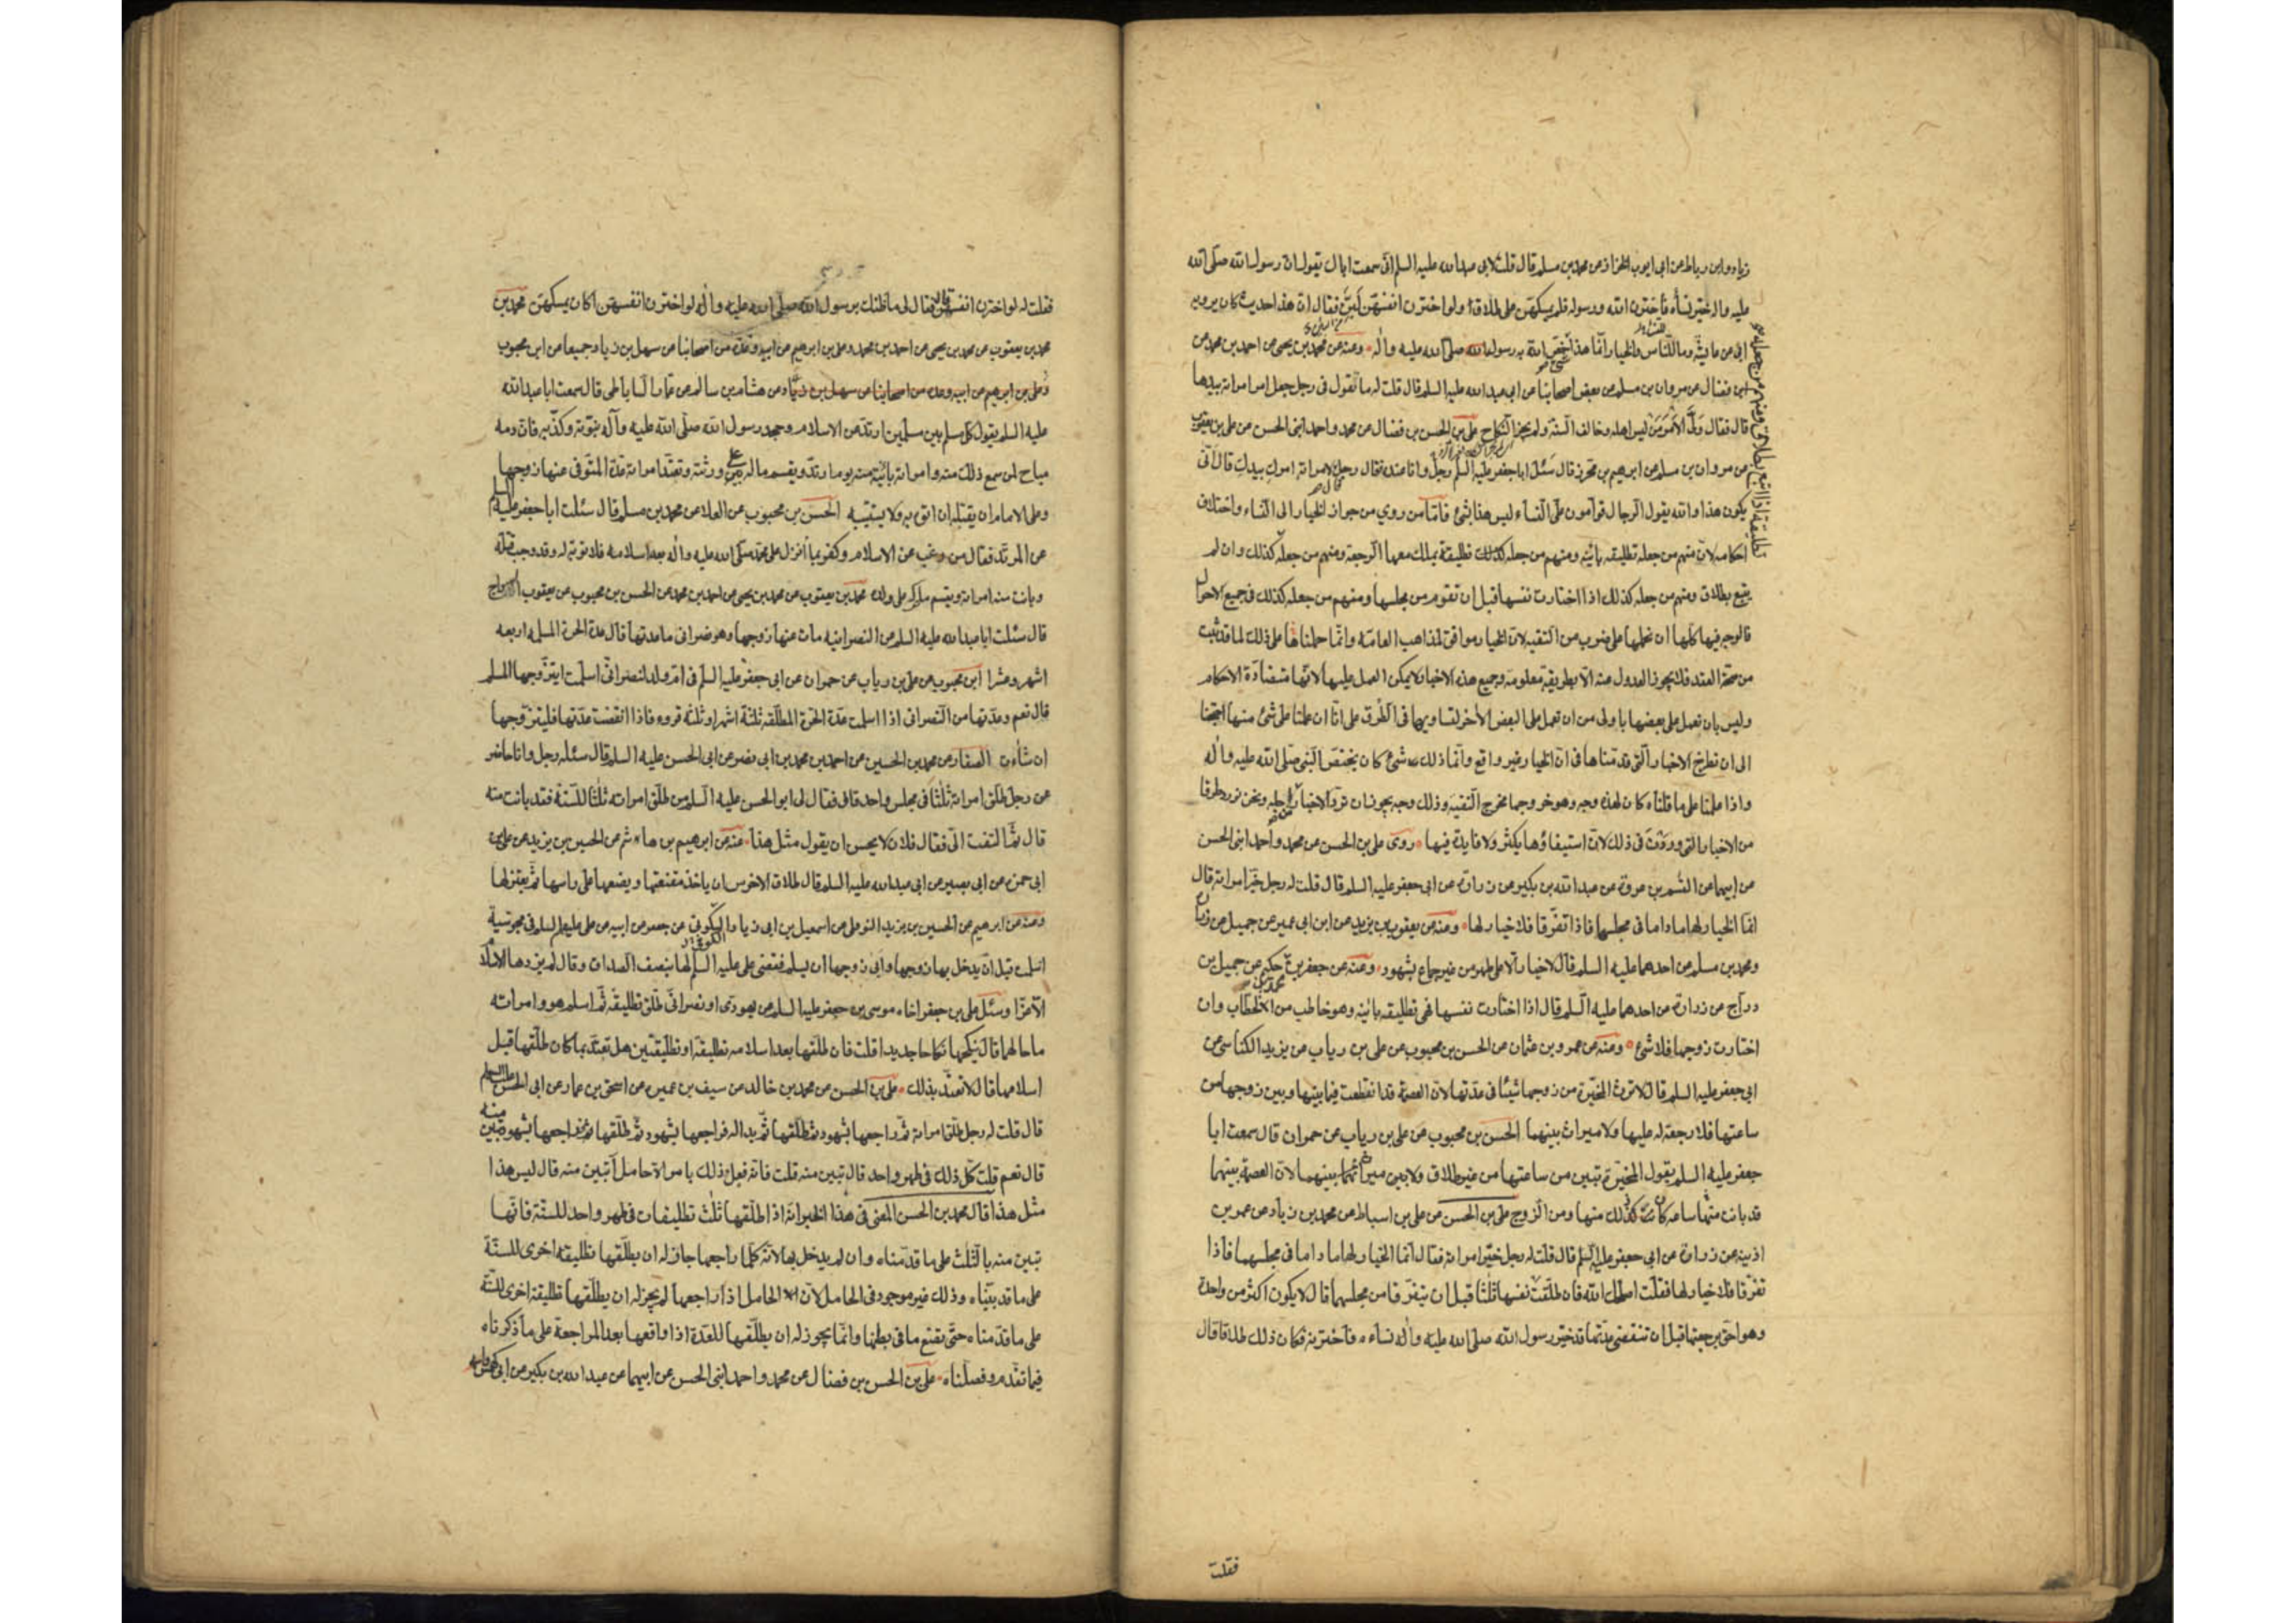 زياد وابن رباط عن ابى ايوب الخزاز عن محمد بن مسلم قال قلت لابى عبد الله عليه السلم انى سمعت اباك يقول ان رسول الله صلى الله
عليه واله خير نسآءه فأخترن الله ورسوله فلم يمسكهن على طلاق ولو اخترن انفسهن لبنّ فقال ان هذا حديث كان يرويه
ابى عن عايشة وما للناس والخيار انما هذا شئ خص الله به رسوله صلى الله عليه واله ومنه عن محمد بن يحيى عن احمد بن محمد عن
ابن فضال عن مروان بن مسلم عن بعض اصحابنا عن ابى عبد الله عليه السلم قال قلت له ما تقول فى رجل جعل امر امراته بيدها
قال فقال ولّى الامر من ليس اهله وخالف السنة ولم يجز النكاح على بن الحسن بن فضال عن محمد واحمد ابنى الحسن عن على بن يعقوب
عن مروان بن مسلم عن ابرهيم بن محرز قال سئل ابا جعفر عليه السلم رجل وانا عنده فقال رجل قال لامراته امرك بيدك قال انى
يكون هذا والله يقول الرجال قوامون على النسآء ليس هذا بشئ فاما من روي من جواز الخيار الى النسآء واختلاف
احكامه لان منهم من جعله تطليقه باينه ومنهم من جعله كذلك تطليقة يملك معها الرجعة ومنهم من جعله كذلك وان لم
يتبع بطلاق ومنهم من جعله كذلك اذا اختارت نفسها قبل ان تقوم من مجلسها ومنهم من جعله كذلك فى جميع الاحوال
فالوجه فيها كلها ان نحملها على ضرب من التقيه لان الخيار موافق لمذاهب العامه وانما حملناها على ذلك لما قد ثبت
من صحة العقد فلا يجوز العدول عنه الا بطريقة معلومة وجميع هذه الاخبار لا يمكن العمل عليها لانها متضادة الاحكام
وليس بان نعمل على بعضها باولى من ان نعمل على البعض الأخر لتساويهما فى الطرق على انا ان عملنا على شئ منها احتجنا
الى ان نطرح الاخبار التى قدمناها فى ان الخيار غير واقع وانما ذلك شئ كان يختص النبى صلى الله عليه واله
واذا عملنا على ما قلناه كان لهذه وجه وهو خروجها مخرج التقيه وذلك وجه يجوز ان ترد الاخبار لاجله ونحن نورد طرفا
من الاخبار التى وردت فى ذلك لان استيفاؤها يكثر ولا فايدة فيها روى على بن الحسن عن محمد واحمد ابنى الحسن
عن ابيهما عن القسم بن عروة عن عبد الله بن بكير عن زرارة عن ابى جعفر عليه السلم قال قلت له رجل خير امراته قال
انما الخيار لها ماداما فى مجلسهما فاذا تفرقا فلا خيار لها ومنه عن يعقوب بن يزيد عن ابن ابى عمير عن جميل عن زرارة
ومحمد بن مسلم عن احدهما عليه السلم قال لا خيار الا على طهر من غير جماع بشهود ومنه عن جعفر بن محمد بن حكيم عن جميل بن
دراج عن زرارة عن احدهما عليه السلم قال اذا اختارت نفسها فهى تطليقه باينه وهو خاطب من الخطاب وان
اختارت زوجها فلا شئ ومنه عن عمرو بن عثمان عن الحسن بن محبوب عن على بن رياب عن يزيد الكناسى عن
ابى جعفر عليه السلم قال لا ترث المخيرة من زوجها شيئا فى عدتها لان العصمة قد انقطعت فيما بينها وبين زوجها من
ساعتها فلا رجعة له عليها ولا ميراث بينهما الحسن بن محبوب عن على بن رياب عن حمران قال سمعت ابا
جعفر عليه السلم يقول المخيرة تبين من ساعتها من غير طلاق ولا ميراث بينهما لان العصمة بينهما
قد بانت منها ساعة كان ذلك منها ومن الزوج على بن الحسن عن على بن اسباط عن محمد بن زياد عن عمر بن
اذينه عن زرارة عن ابى جعفر عليه السلم قال قلت له رجل خير امراته فقال انما الخيار لها ماداما فى مجلسهما فاذا
تفرقا فلا خيار لها فقلت اصلحك الله فان طلقت نفسها ثلثا قبل ان يتفرقا من مجلسهما قال لا يكون اكثر من واحدة
وهو احق برجعتها قبل ان تنقضى عدتها قد خير رسول الله صلى الله عليه واله نساءه فأخترنه فكان ذلك طلاقا قال
فقلت
فقلت له لو اخترن انفسهن قال فقال لى ما ظنك برسول الله صلى الله عليه واله لو اخترن انفسهن اكان يمسكهن محمد بن
محمد بن يعقوب عن محمد بن يحيى عن احمد بن محمد وعلى بن ابرهيم عن ابيه وعدة من اصحابنا عن سهل بن زياد جميعا عن ابن محبوب
وعلى بن ابرهيم عن ابيه وعدة من اصحابنا عن سهل بن زياد عن هشام بن سالم عن عمار الساباطى قال سمعت ابا عبد الله
عليه السلم يقول كل مسلم بين مسلمين ارتد عن الاسلام وجحد رسول الله صلى الله عليه وآله نبوته وكذبه فان دمه
مباح لمن سمع ذلك منه وامراته باينة منه يوم ارتد ويقسم ماله على ورثته وتعتد امراته عدة المتوفى عنها زوجها
وعلى الامام ان يقتله ان اتى به ولا يستتيبه الحسن بن محبوب عن العلا عن محمد بن مسلم قال سئلت ابا جعفر عليه السلم
عن المرتد فقال من رغب عن الاسلام وكفر بما انزل على محمد صلى الله عليه واله بعد اسلامه فلا توبة له وقد وجب قتله
وبانت منه امراته ويقسم ما ترك على ولده محمد بن يعقوب عن محمد بن يحيى عن احمد بن محمد عن الحسن بن محبوب عن يعقوب السراج
قال سئلت ابا عبد الله عليه السلم عن النصرانيه مات عنها زوجها وهو نصرانى ما عدتها قال عدة الحرة المسلمه اربعه
اشهر وعشرا ابن محبوب عن على بن رياب عن حمران عن ابى جعفر عليه السلم فى ام ولد لنصرانى اسلمت ايتزوجها المسلم
قال نعم وعدتها من النصرانى اذا اسلمت عدة الحرة المطلقه ثلثة اشهر او ثلثه قروء فاذا انقضت عدتها فليتزوجها
ان شآءت الصفار عن محمد بن الحسين عن احمد بن محمد بن ابى نصر عن ابى الحسن عليه السلم قال سئله رجل وانا حاضر
عن رجل طلق امراته ثلثا فى مجلس واحد قال فقال لى ابو الحسن عليه السلم من طلق امراته ثلثا للسنة فقد بانت منه
قال ثم التفت الىّ فقال فلان لا يحسن ان يقول مثل هذا عنه عن ابرهيم بن هاشم عن الحسين بن يزيد عن على بن
ابى حمزه عن ابى بصير عن ابى عبد الله عليه السلم قال طلاق الاخرس ان ياخذ مقنعتها ويضعها على راسها ثم يعتزلها
وعنه عن ابرهيم عن الحسين بن يزيد النوفلى عن اسمعيل بن ابى زياد السكونى عن جعفر عن ابيه عن على عليهم السلم فى مجوسية
اسلمت قبل ان يدخل بها زوجها وابى زوجها ان يسلم فقضى على عليه السلم لها بنصف الصداق وقال لم يزدها الاسلام
الا عزا وسئل على بن جعفر اخاه موسى بن جعفر عليه السلم عن يهودى او نصرانى طلق تطليقة ثم اسلم هو وامراته
ما حالهما قال ينكحها نكاحا جديدا قلت فان طلقها بعد اسلامه تطليقة او تطليقتين هل تعتد بما كان طلقها قبل
اسلامها قال لا تعتد بذلك على بن الحسن عن محمد بن خالد عن سيف بن عميره عن اسحق بن عمار عن ابى الحسن عليه السلم
قال قلت له رجل طلق امراته ثم راجعها بشهود ثم طلقها ثم بدا له فراجعها بشهود ثم طلقها ثم فراجعها بشهود تبين منه
قال نعم قلت كل ذلك فى طهر واحد قال تبين منه قلت فانه فعل ذلك بامراة حامل أتبين منه قال ليس هذا
مثل هذا قال محمد بن الحسن المعنى فى هذا الخبر انه اذا طلقها ثلث تطليقات فى طهر واحد للسنة فانها
تبين منه بالثلث على ما قدمناه وان لم يدخل بها لانه كلما راجعها جاز له ان يطلقها تطليقه اخرى للسنة
على ما قد بيناه وذلك غير موجود فى الحامل لان الحامل اذا راجعها لم يجز له ان يطلقها تطليقة اخرى للسنة
على ما قدمناه حتى تضع ما فى بطنها وانما يجوز له ان يطلقها للعدة اذا واقعها بعد المراجعة على ما ذكرناه
فيما تقدم وفصلناه على بن الحسن بن فضال عن محمد واحمد ابنى الحسن عن ابيهما عن عبد الله بن بكير عن ابى كهمس